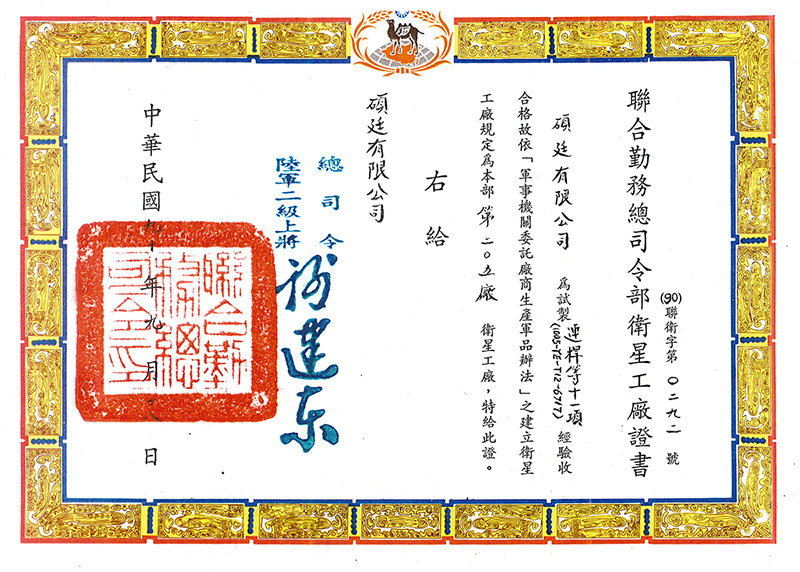 聯合勤務總司令部衛星工廠證書
(90)聯衛字第〇二九二號
碩廷有限公司 為試製連桿等十一項(1005-YE-T12-6747)經驗收
合格故依「軍事機關委託廠商生產軍品辦法」之建立衛星
工廠規定為本部第二〇五廠 衛星工廠，特給此證。
右給
碩廷有限公司
總司令
陸軍二級上將
謝建東
中華民國九十年九月 日
聯合勤
務總
司令印